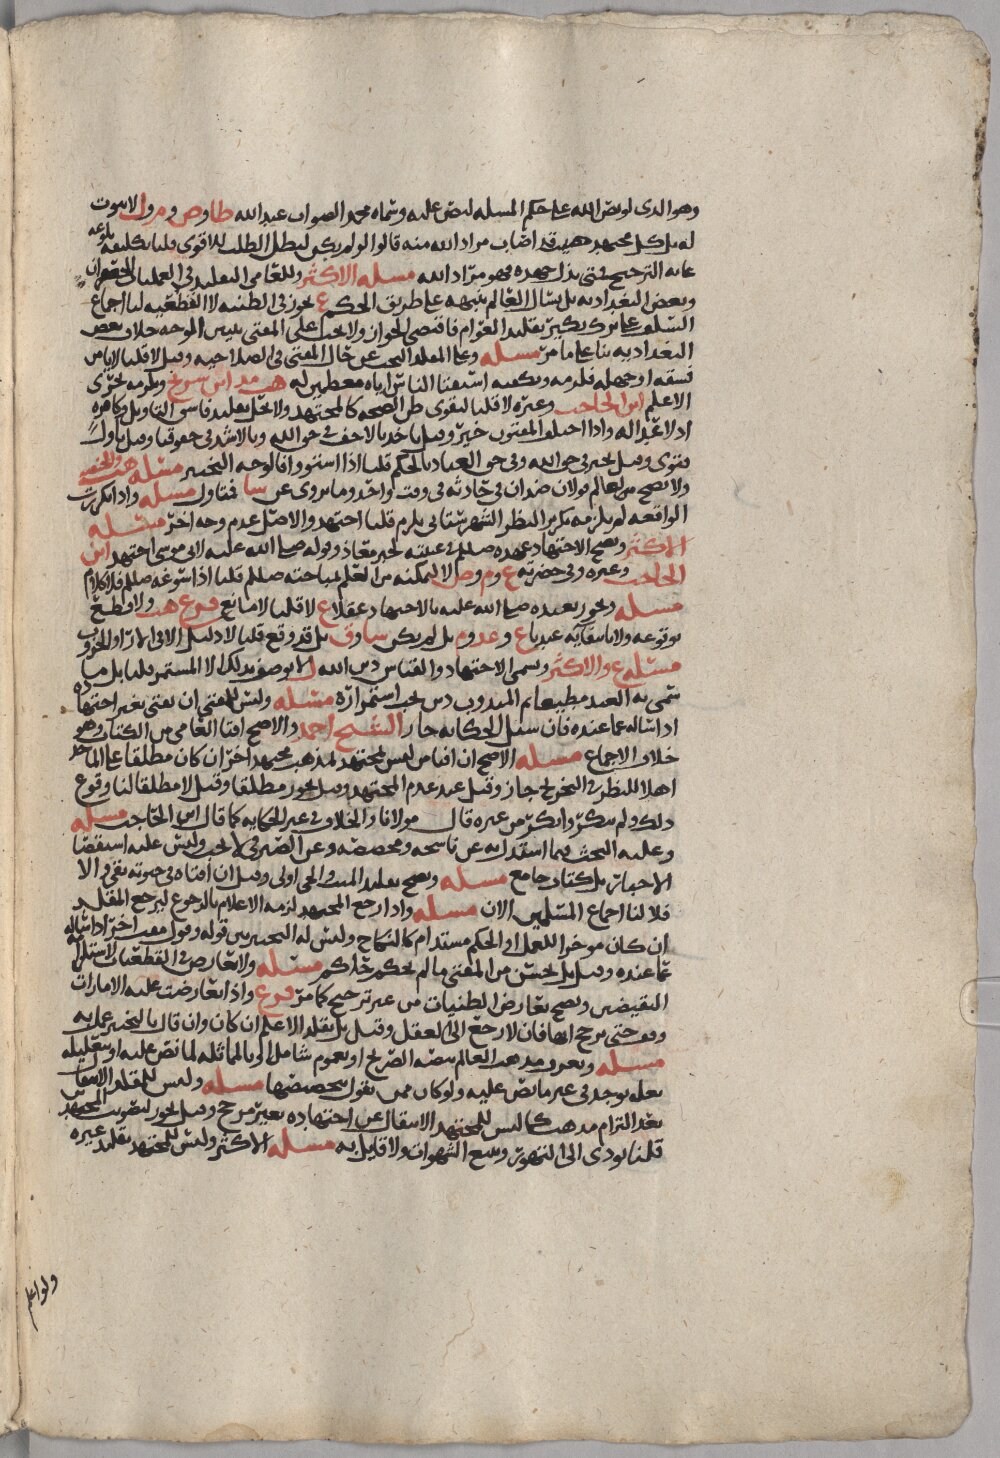 وهو الذي لو نص الله على حكم المسئلة لنص عليه وسماه محمد الصواب عبدالله ط وص و م ول لا بيوت
له بل كل مجتهد فقد اصاب مراد الله منه قالوا لو لم يكن لبطل الطلب لنا قوي قلنا تكليفه بلوغه
غاية الترجيح فمتى بذل جهده فهو مراد الله مسئلة الاكثر وللعامي التقليد في العمليات الجعفران
وبعض البغدادية بل يسأل العالم بنبهه على طريق الحكم ع يجوز في الظنية لا القطعية لنا اجماع
السلف على ترك نكير تقليد العوام فاقتضى الجواز ولا يجب على المفتي تبيين الوجه خلاف بعض
البغدادية بنا على ما مر مسئلة وعلى المقلد البحث عن حال المفتي في الصلاحية وقيل لا قلنا لا يامن
فسقه او جهله فلزمه ويكفيه استفتا الناس اياه معظمين له مسئلة ابن سريج ويلزمه تحري
الاعلم ابن الحاجب وغيره لا قلنا ليقوى ظن الصحة كالمجتهد ولا يحل تقليد فاسق التاويل وكافره
اذ لا عدالة واذا اختلف المفتون خير وقيل ياخذ بالاخف في حق الله وبالاشد في حقوقنا وقيل باول
فتوى وقيل يخير في حق الله وفي حق العباد بالحكم قلنا اذا استووا فالوجه التخيير مسئلة
ولا يصح من لعالم قولان ضدان في حادثة في وقت واحد وما يروى عن شا فمتاول مسئلة واذا تكررت
الواقعة لم يلزمه تكرير النظر الشهرستاني يلزم قلنا اجتهد والاصل عدم وجه اخر مسئلة
الاكثر ويصح الاجتهاد عهده صللم في غيبته لخبر معاذ وقوله صلى الله عليه لابي موسى اجتهد ابن
الحاجب وغيره وفي حضرته ع وم وص لا ليمكنه من العلم بمباحثة صللم قلنا اذا سوغه صللم فلا كلام
مسئلة ويجوز تعبده صلى الله عليه بالاجتهاد عقلا ع لا قلنا لا مانع فرع ولا قطع
بوقوعه ولا بانتفائه عبد باع وعد وم بل لم يكن سا وق بل قد وقع قلنا لا دليل الا في الارا والحروب
مسئلة ع والاكثر ويسمى الاجتهاد والقياس دين الله ل لا يوصف بذلك الا المستمر قلنا بل ما
سمي به العبد مطيعا ثم المندوب دين يجب استمراره مسئلة وليس للمفتي ان يفتي بغير اجتهاده
اذا سأله عما عنده فان سئل الحكاية جاز الشيخ احمد والاصح افتا العامي من الكتاب وهو
خلاف الاجماع مسئلة الاصح ان افتا من ليس بمجتهد بمذهب مجتهد اخر ان كان مطلعا على الماخذ
اهلا للنظر في التخريج جاز وقيل عند عدم المجتهد وقيل يجوز مطلقا وقيل لا مطلقا لنا وقوع
ذلك ولم ينكر وانكر من غيره قال مولانا والخلاف في غير الحكاية كما قال ابن الحاجب مسئلة
وعليه البحث فيما استدل به عن ناسخه ومخصصه وعن الصيرفي لا يجب وليس عليه استقصا
الاخبار بل كتاب جامع مسئلة ويصح تقليد الميت والحي اولى وقيل ان افتاه في حيوته بقي والا
فلا لنا اجماع المسلمين الان مسئلة واذا رجع المجتهد لزمه الاعلام بالرجوع ليرجع المقلد
ان كان موخرا للعمل او الحكم مستدام كالنكاح وليس له التخيير بين قوله وقول مفت اخر اذا سأله
عما عنده وقيل بل يحسن من المفتي ما لم يحكم حاكم مسئلة ولا تعارض في القطعيات لاستلزامه
النقيضين ويصح تعارض الظنيات من غير ترجيح كما مر فرع واذا تعارضت عليه الامارات
وقف حتى يرجح ايها فان لا رجع الى العقل وقيل بل يقلد الاعلم ان كان وان قال بالتخيير عمل به
مسئلة ويعرف مذهب العالم بنصه الصريح او بعموم شامل او بالمماثلة لما نص عليه او بتعليله
بعلة توجد في غير ما نص عليه ولو كان ممن يقول بتخصيصها مسئلة وليس للمقلد الانتقال
بعد التزام مذهب كما ليس للمجتهد الانتقال عن اجتهاده بغير مرجح وقيل يجوز لتصويب المجتهد
قلنا يودي الى التهور وتتبع الشهوات ولا قايل به مسئلة الاكثر وليس للمجتهد تقليد غيره
ولو اعلم